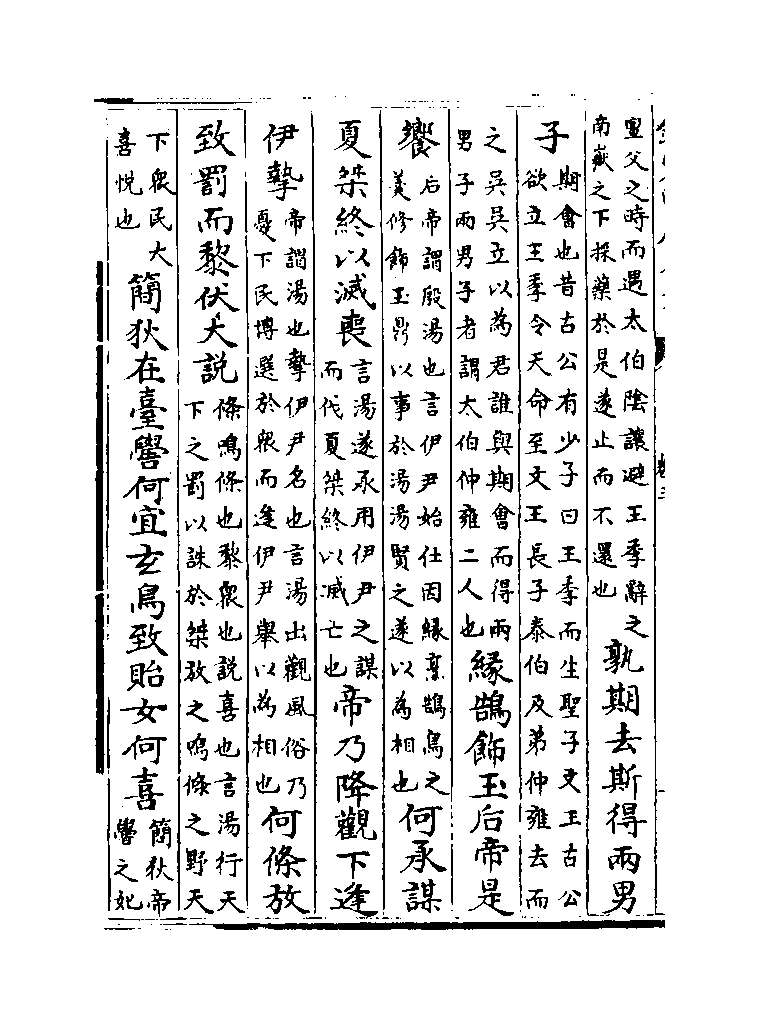 亶父之時而遇太伯陰讓避王季辭之
南嶽之下採藥於是遂止而不還也
孰期去斯得兩男
子
期會也昔古公有少子曰王季而生聖子文王古公
欲立王季令天命至文王長子泰伯及弟仲雍去而
之吳吳立以為君誰與期會而得兩
男子兩男子者謂太伯仲雍二人也
緣鵠飾玉后帝是
饗
后帝謂殷湯也言伊尹始仕因緣烹鵠鳥之
羮修飾玉鼎以事於湯湯賢之遂以為相也
何承謀
夏桀終以滅喪
言湯遂承用伊尹之謀
而伐夏桀終以滅亡也
帝乃降觀下逢
伊摯
帝謂湯也摯伊尹名也言湯出觀風俗乃
憂下民博選於衆而逢伊尹舉以為相也
何條放
致罰而黎伏大説
條鳴條也黎衆也説喜也言湯行天
下之罰以誅於桀放之鳴條之野天
下衆民大
喜悦也
簡狄在臺嚳何宜玄鳥致貽女何喜
簡狄帝
嚳之妃